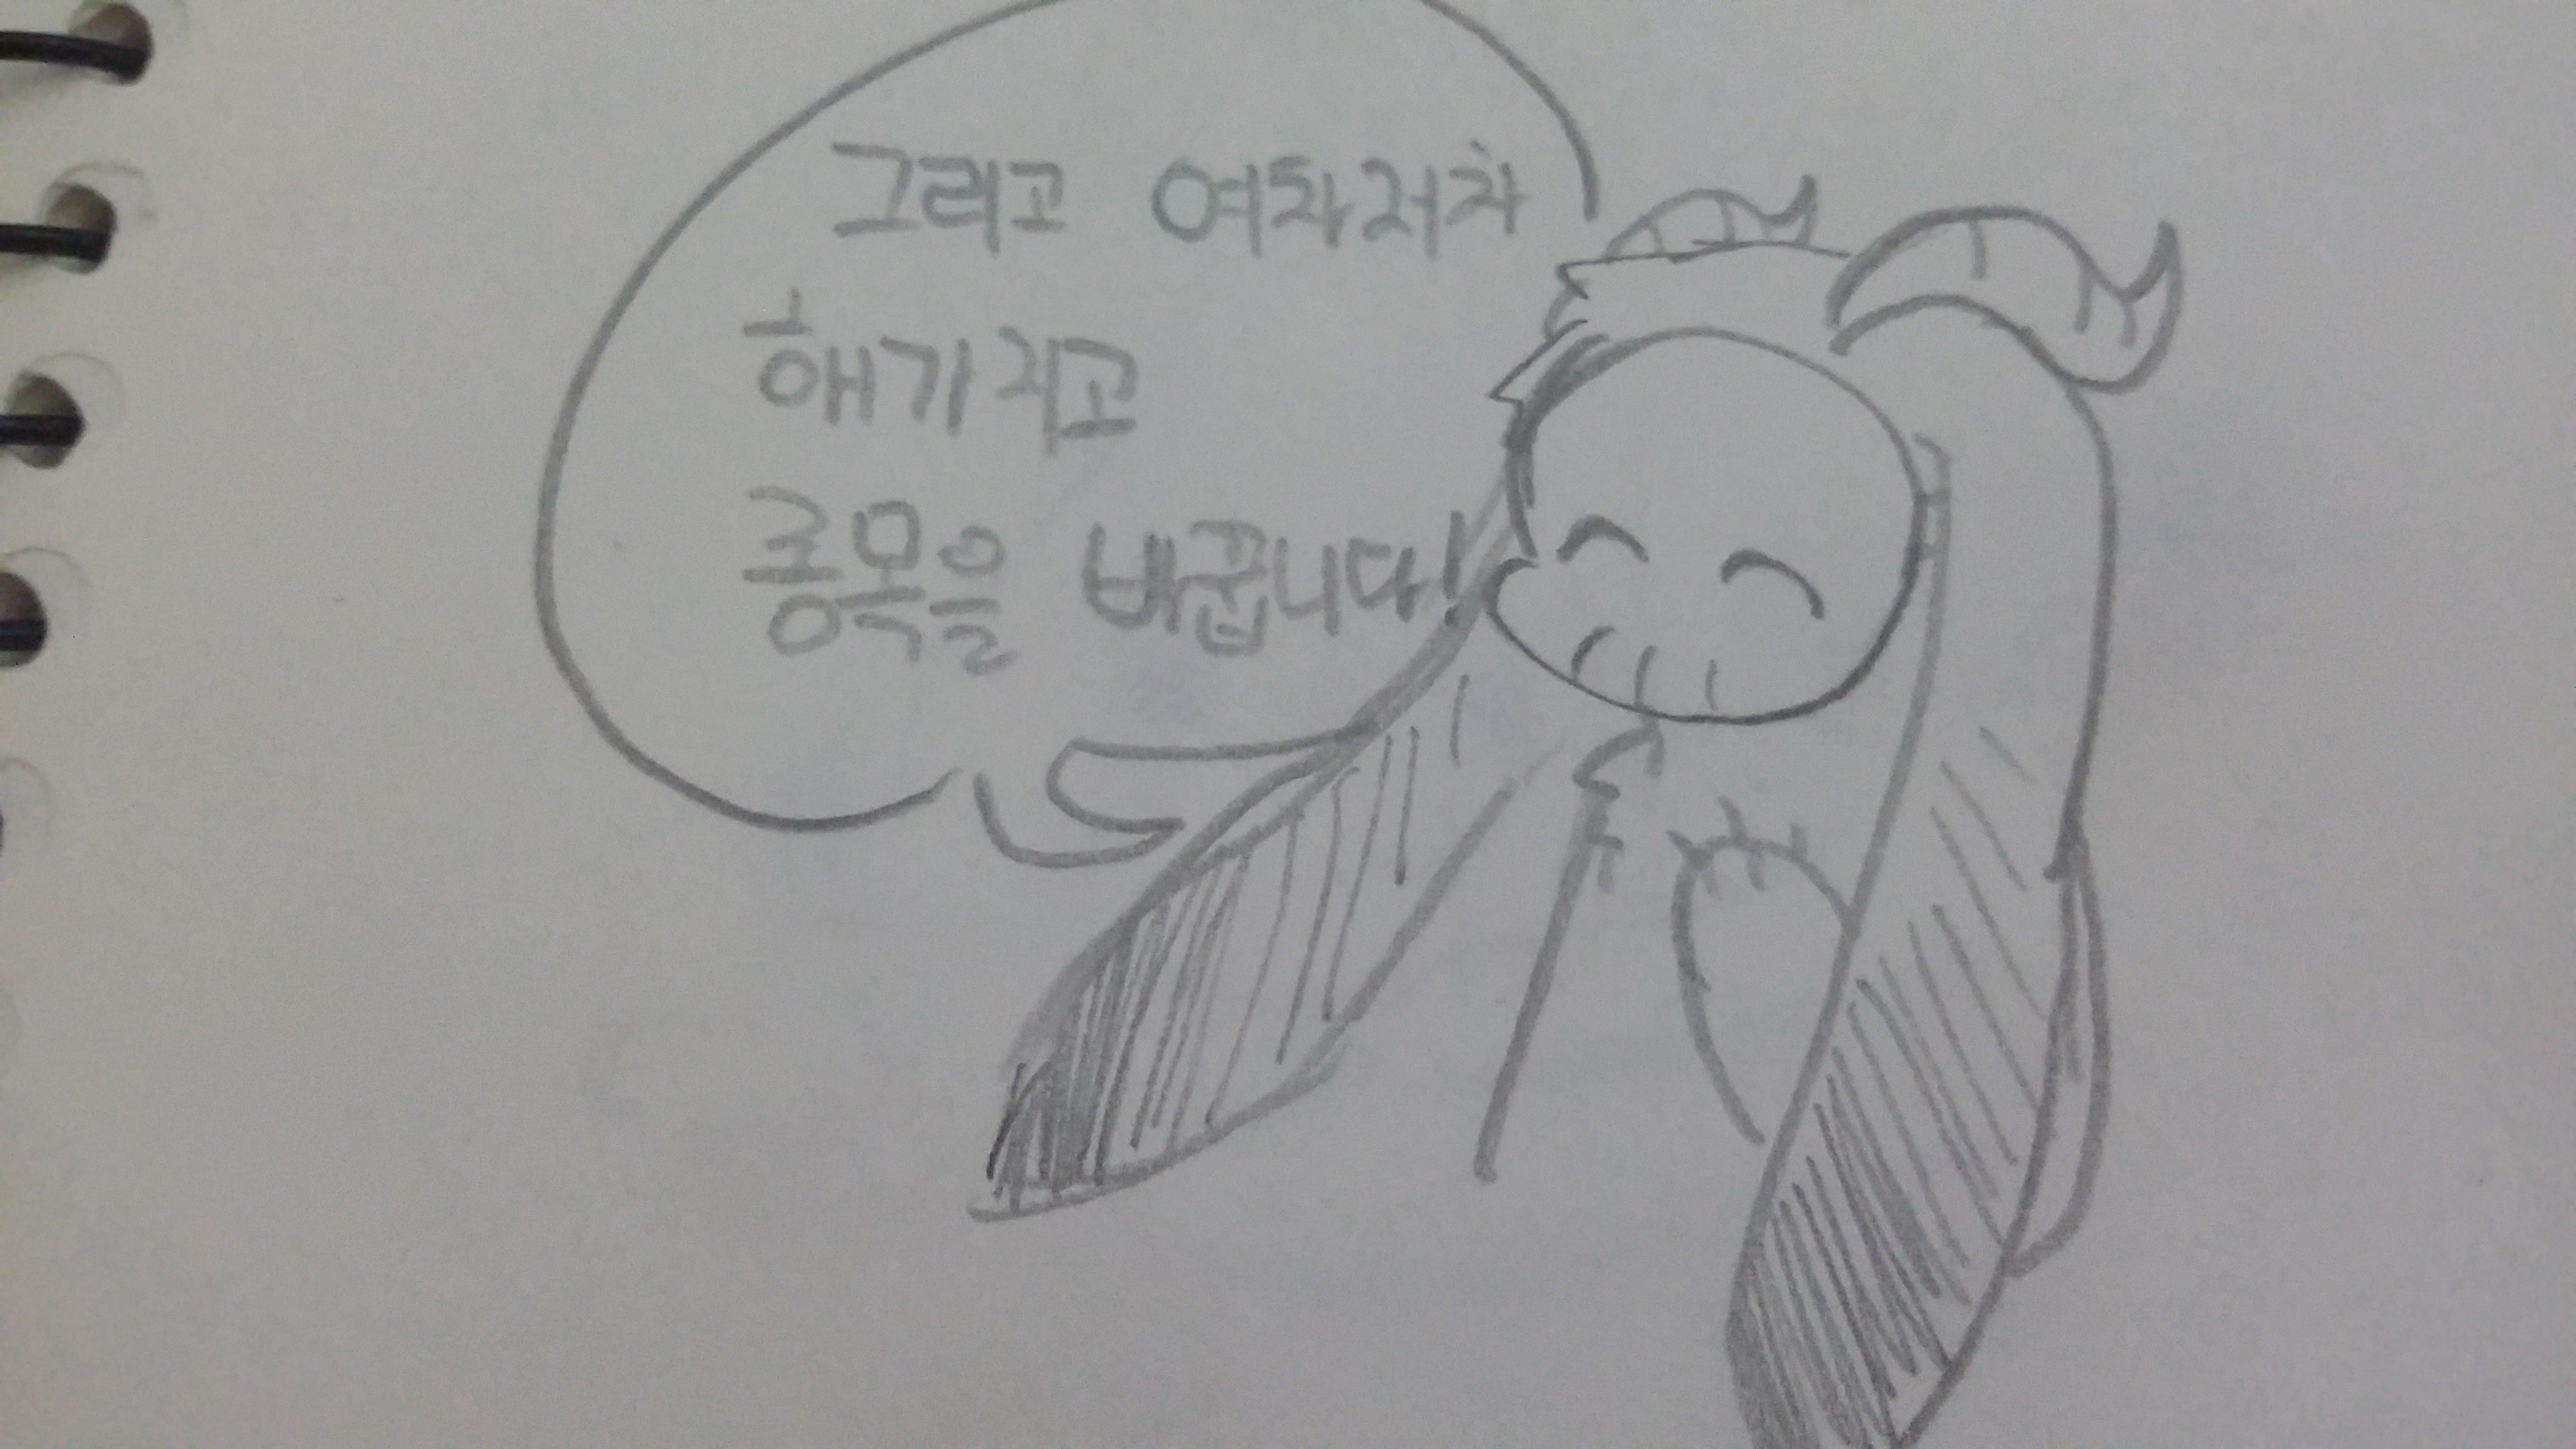 그리고 여차저차
해가지고
종목을 바꿉니다!